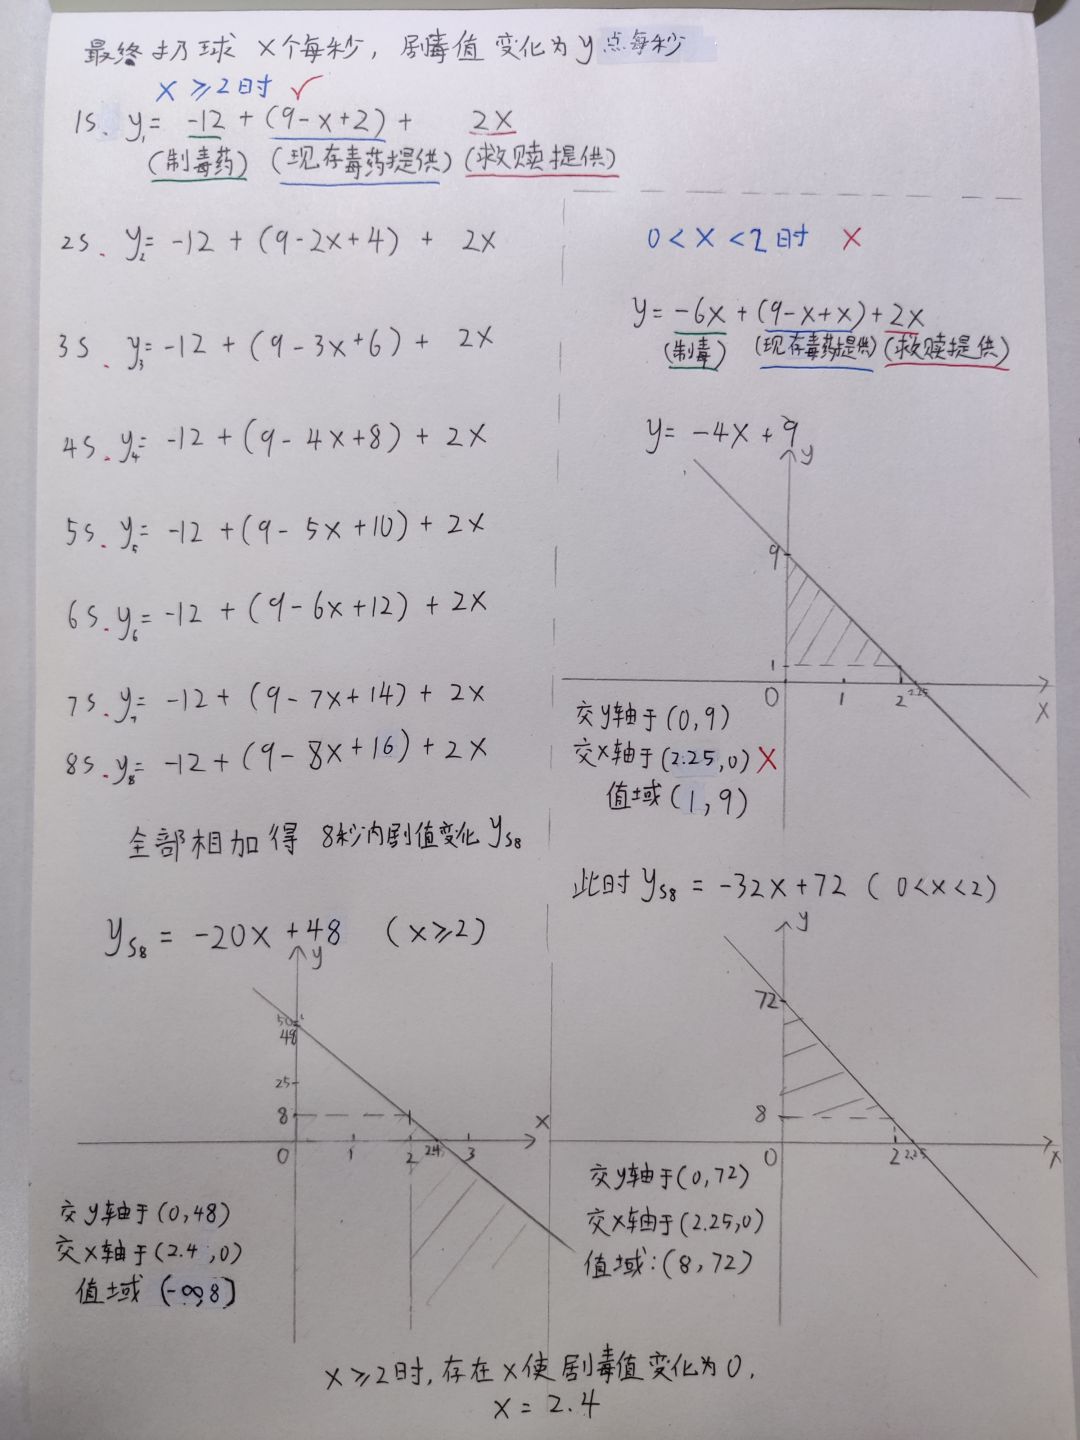 最终扔球 x个每秒，剧毒值变化为y点每秒
x≥2时 ✓
1s、y₁= -12 + (9-x+2) + 2x
(制毒药) (现存毒药提供) (救赎提供)
2s、y₂= -12 + (9-2x+4) + 2x
3s、y₃= -12 + (9-3x+6) + 2x
4s、y₄= -12 + (9-4x+8) + 2x
5s、y₅= -12 + (9-5x+10) + 2x
6s、y₆= -12 + (9-6x+12) + 2x
7s、y₇= -12 + (9-7x+14) + 2x
8s、y₈= -12 + (9-8x+16) + 2x
全部相加得 8秒内剧值变化 yₛ₈
yₛ₈ = -20x+48 (x≥2)
y
50
48
25
8
x
0 1 2 2.4 3
交y轴于(0,48)
交x轴于(2.4,0)
值域 (-∞,8]
0<x<2时 ×
y= -6x + (9-x+x) + 2x
(制毒) (现存毒药提供) (救赎提供)
y= -4x+9
y
9
1
0 1 2 2.25
x
交y轴于(0,9)
交x轴于(2.25,0) ×
值域(1,9)
此时 yₛ₈ = -32x+72 (0<x<2)
y
72
8
0 2 2.25 x
交y轴于(0,72)
交x轴于(2.25,0)
值域:(8,72)
x≥2时,存在x使剧毒值变化为0.
x=2.4